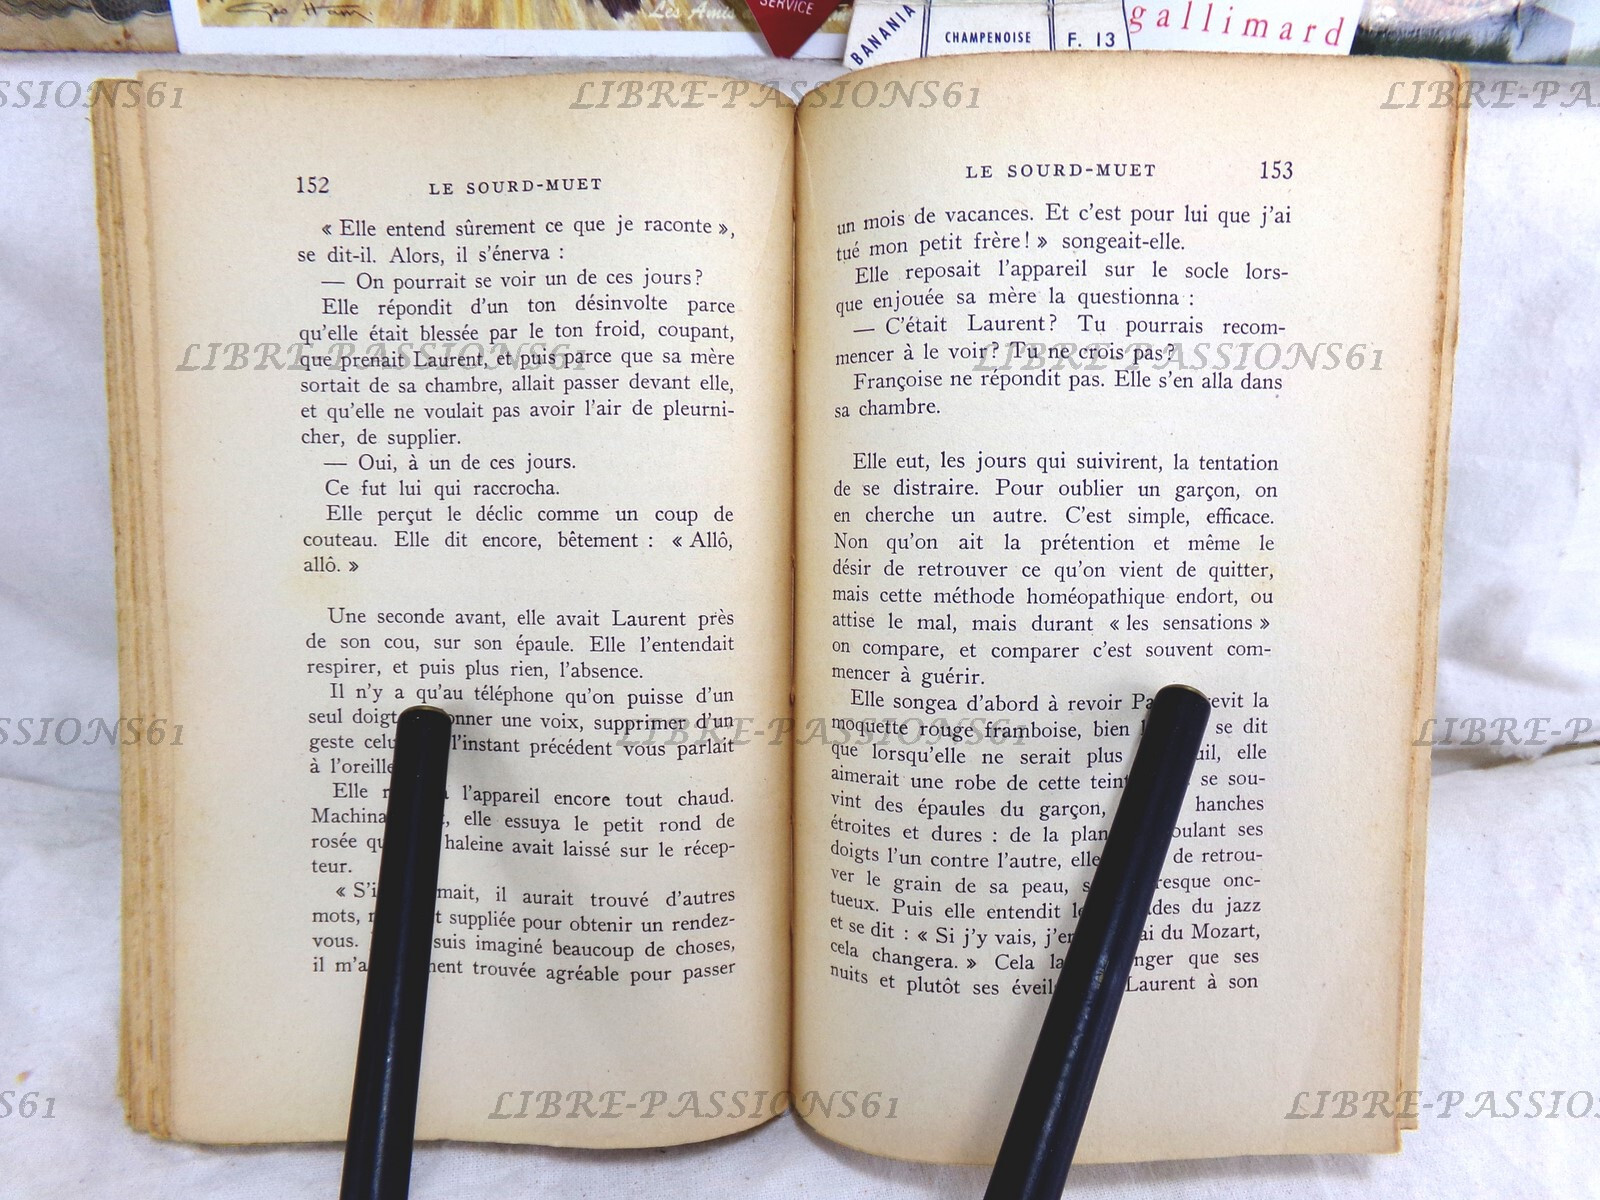 Geo Ham
Les Amis
SERVICE
BANANIA
CHAMPENOISE
F. 13
gallimard
LIBRE-PASSIONS61
152 LE SOURD-MUET
« Elle entend sûrement ce que je raconte »,
se dit-il. Alors, il s'énerva :
— On pourrait se voir un de ces jours?
Elle répondit d'un ton désinvolte parce
qu'elle était blessée par le ton froid, coupant,
que prenait Laurent, et puis parce que sa mère
sortait de sa chambre, allait passer devant elle,
et qu'elle ne voulait pas avoir l'air de pleurni-
cher, de supplier.
— Oui, à un de ces jours.
Ce fut lui qui raccrocha.
Elle perçut le déclic comme un coup de
couteau. Elle dit encore, bêtement : « Allô,
allô. »
Une seconde avant, elle avait Laurent près
de son cou, sur son épaule. Elle l'entendait
respirer, et puis plus rien, l'absence.
Il n'y a qu'au téléphone qu'on puisse d'un
seul doigt onner une voix, supprimer d'un
geste celu l'instant précédent vous parlait
à l'oreille
Elle l'appareil encore tout chaud.
Machina elle essuya le petit rond de
rosée qu haleine avait laissé sur le récep-
teur.
« S'i mait, il aurait trouvé d'autres
mots, t suppliée pour obtenir un rendez-
vous. suis imaginé beaucoup de choses,
il m'a ent trouvée agréable pour passer
LE SOURD-MUET 153
un mois de vacances. Et c'est pour lui que j'ai
tué mon petit frère! » songeait-elle.
Elle reposait l'appareil sur le socle lors-
que enjouée sa mère la questionna :
— C'était Laurent? Tu pourrais recom-
mencer à le voir? Tu ne crois pas?
Françoise ne répondit pas. Elle s'en alla dans
sa chambre.
Elle eut, les jours qui suivirent, la tentation
de se distraire. Pour oublier un garçon, on
en cherche un autre. C'est simple, efficace.
Non qu'on ait la prétention et même le
désir de retrouver ce qu'on vient de quitter,
mais cette méthode homéopathique endort, ou
attise le mal, mais durant « les sensations »
on compare, et comparer c'est souvent com-
mencer à guérir.
Elle songea d'abord à revoir Pa revit la
moquette rouge framboise, bien se dit
que lorsqu'elle ne serait plus uil, elle
aimerait une robe de cette teint se sou-
vint des épaules du garçon, hanches
étroites et dures : de la plan oulant ses
doigts l'un contre l'autre, elle de retrou-
ver le grain de sa peau, s resque onc-
tueux. Puis elle entendit le des du jazz
et se dit : « Si j'y vais, j'en ai du Mozart,
cela changera. » Cela la nger que ses
nuits et plutôt ses éveils Laurent à son
LIBRE-PASSIONS61
LIBRE-PASSIONS61
LIBRE-PASSIONS61
LIBRE-PASSIONS61